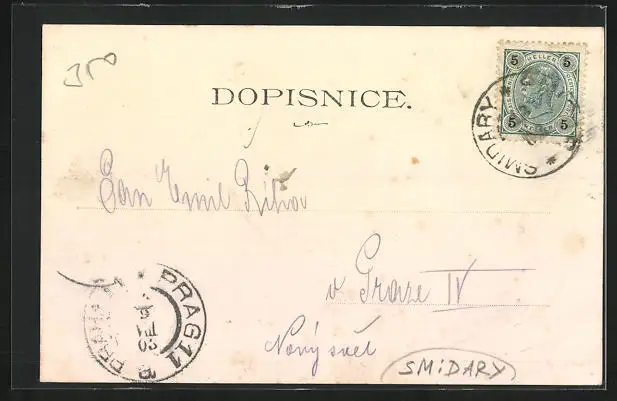 350
5 HELLER 5
5 5
DOPISNICE.
SMIDARY
Pan Emil Říha
v Praze IV
Nový svět
PRAG 11
PRAHA
VIII
03
SMiDARY